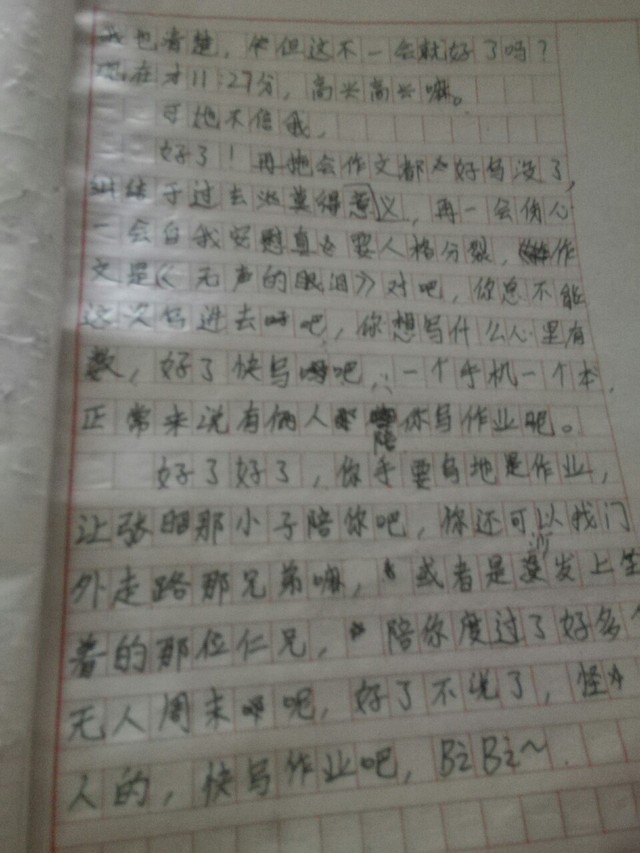 我也清楚，你但这不一会就好了吗？
现在才11:27分，高兴高兴嘛。
可她不信我，
好了！再拖会作文都好写没了，
纠结于过去莫得意义，再一会伤心
一会自我安慰真要人格分裂，作
文是《无声的眼泪》对吧，你总不能
这次写进去吧，你想写什么心里有
数，好了快写吧，一个手机一个本，
正常来说有俩人陪你写作业吧。
好了好了，你手要写地是作业，
让张昭那小子陪你吧，你还可以找门
外走路那兄弟嘛，或者是沙发上坐
着的那位仁兄，陪你度过了好多个
无人周末呢，好了不说了，怪
人的，快写作业吧，